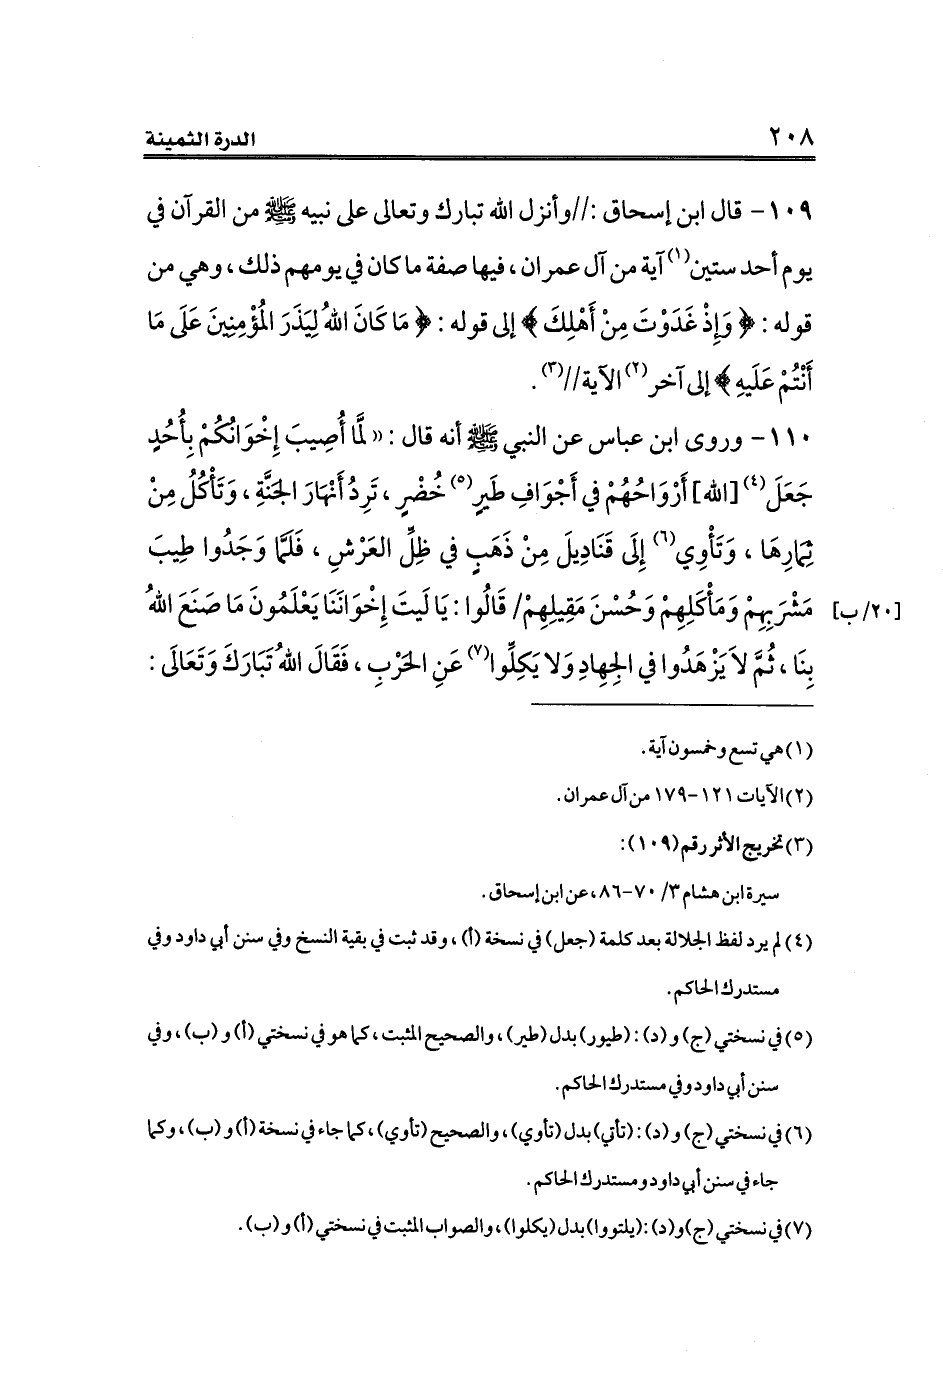 ٢٠٨ الدرة الثمينة
١٠٩- قال ابن إسحاق: //وأنزل الله تبارك وتعالى على نبيه ﷺ من القرآن في
يوم أحد ستين(١) آية من آل عمران، فيها صفة ما كان في يومهم ذلك، وهي من
قوله: ﴿وَإِذْ غَدَوْتَ مِنْ أَهْلِكَ﴾ إلى قوله: ﴿مَا كَانَ اللهُ لِيَذَرَ المُؤْمِنِينَ عَلَى مَا
أَنْتُمْ عَلَيهِ﴾ إلى آخر(٢) الآية//(٣).
١١٠- وروى ابن عباس عن النبي ﷺ أنه قال: «لَمَّا أُصِيبَ إِخْوَانُكُمْ بِأُحُدٍ
جَعَلَ(٤) [الله] أَرْوَاحُهُمْ فِي أَجْوَافِ طَيرٍ(٥) خُضْرٍ، تَرِدُ أَنْهَارَ الجَنَّةِ، وَتَأْكُلُ مِنْ
ثِمَارِهَا، وَتَأْوِي(٦) إِلَى قَنَادِيلَ مِنْ ذَهَبٍ فِي ظِلِّ العَرْشِ، فَلَمَّا وَجَدُوا طِيبَ
مَشْرَبِهِمْ وَمَأْكَلِهِمْ وَحُسْنَ مَقِيلِهِمْ/ قَالُوا: يَا لَيتَ إِخْوَانَنَا يَعْلَمُونَ مَا صَنَعَ اللهُ [٢٠/ب]
بِنَا، ثُمَّ لاَ يَزْهَدُوا فِي الجِهادِ وَلا يَكِلُّوا(٧) عَنِ الحَرْبِ، فَقَالَ اللهُ تَبَارَكَ وَتَعَالَى:
(١) هي تسع وخمسون آية.
(٢) الآيات ١٢١-١٧٩ من آل عمران.
(٣) تخريج الأثر رقم (١٠٩):
سيرة ابن هشام ٣/ ٧٠-٨٦، عن ابن إسحاق.
(٤) لم يرد لفظ الجلالة بعد كلمة (جعل) في نسخة (أ)، وقد ثبت في بقية النسخ وفي سنن أبي داود وفي
مستدرك الحاكم.
(٥) في نسختي (ج) و(د): (طيور) بدل (طير)، والصحيح المثبت، كما هو في نسختي (أ) و (ب)، وفي
سنن أبي داود وفي مستدرك الحاكم.
(٦) في نسختي (ج) و(د): (تأتي) بدل (تأوي)، والصحيح (تأوي)، كما جاء في نسخة (أ) و (ب)، وكما
جاء في سنن أبي داود ومستدرك الحاكم.
(٧) في نسختي (ج) و(د): (يلتووا) بدل (يكلوا)، والصواب المثبت في نسختي (أ) و (ب).